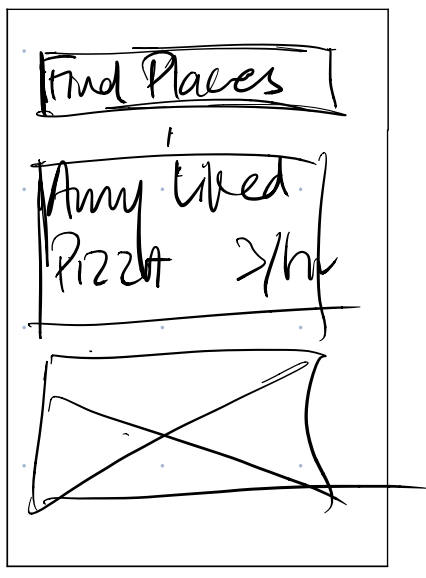 Find Places
Amy Liked
PIZZA